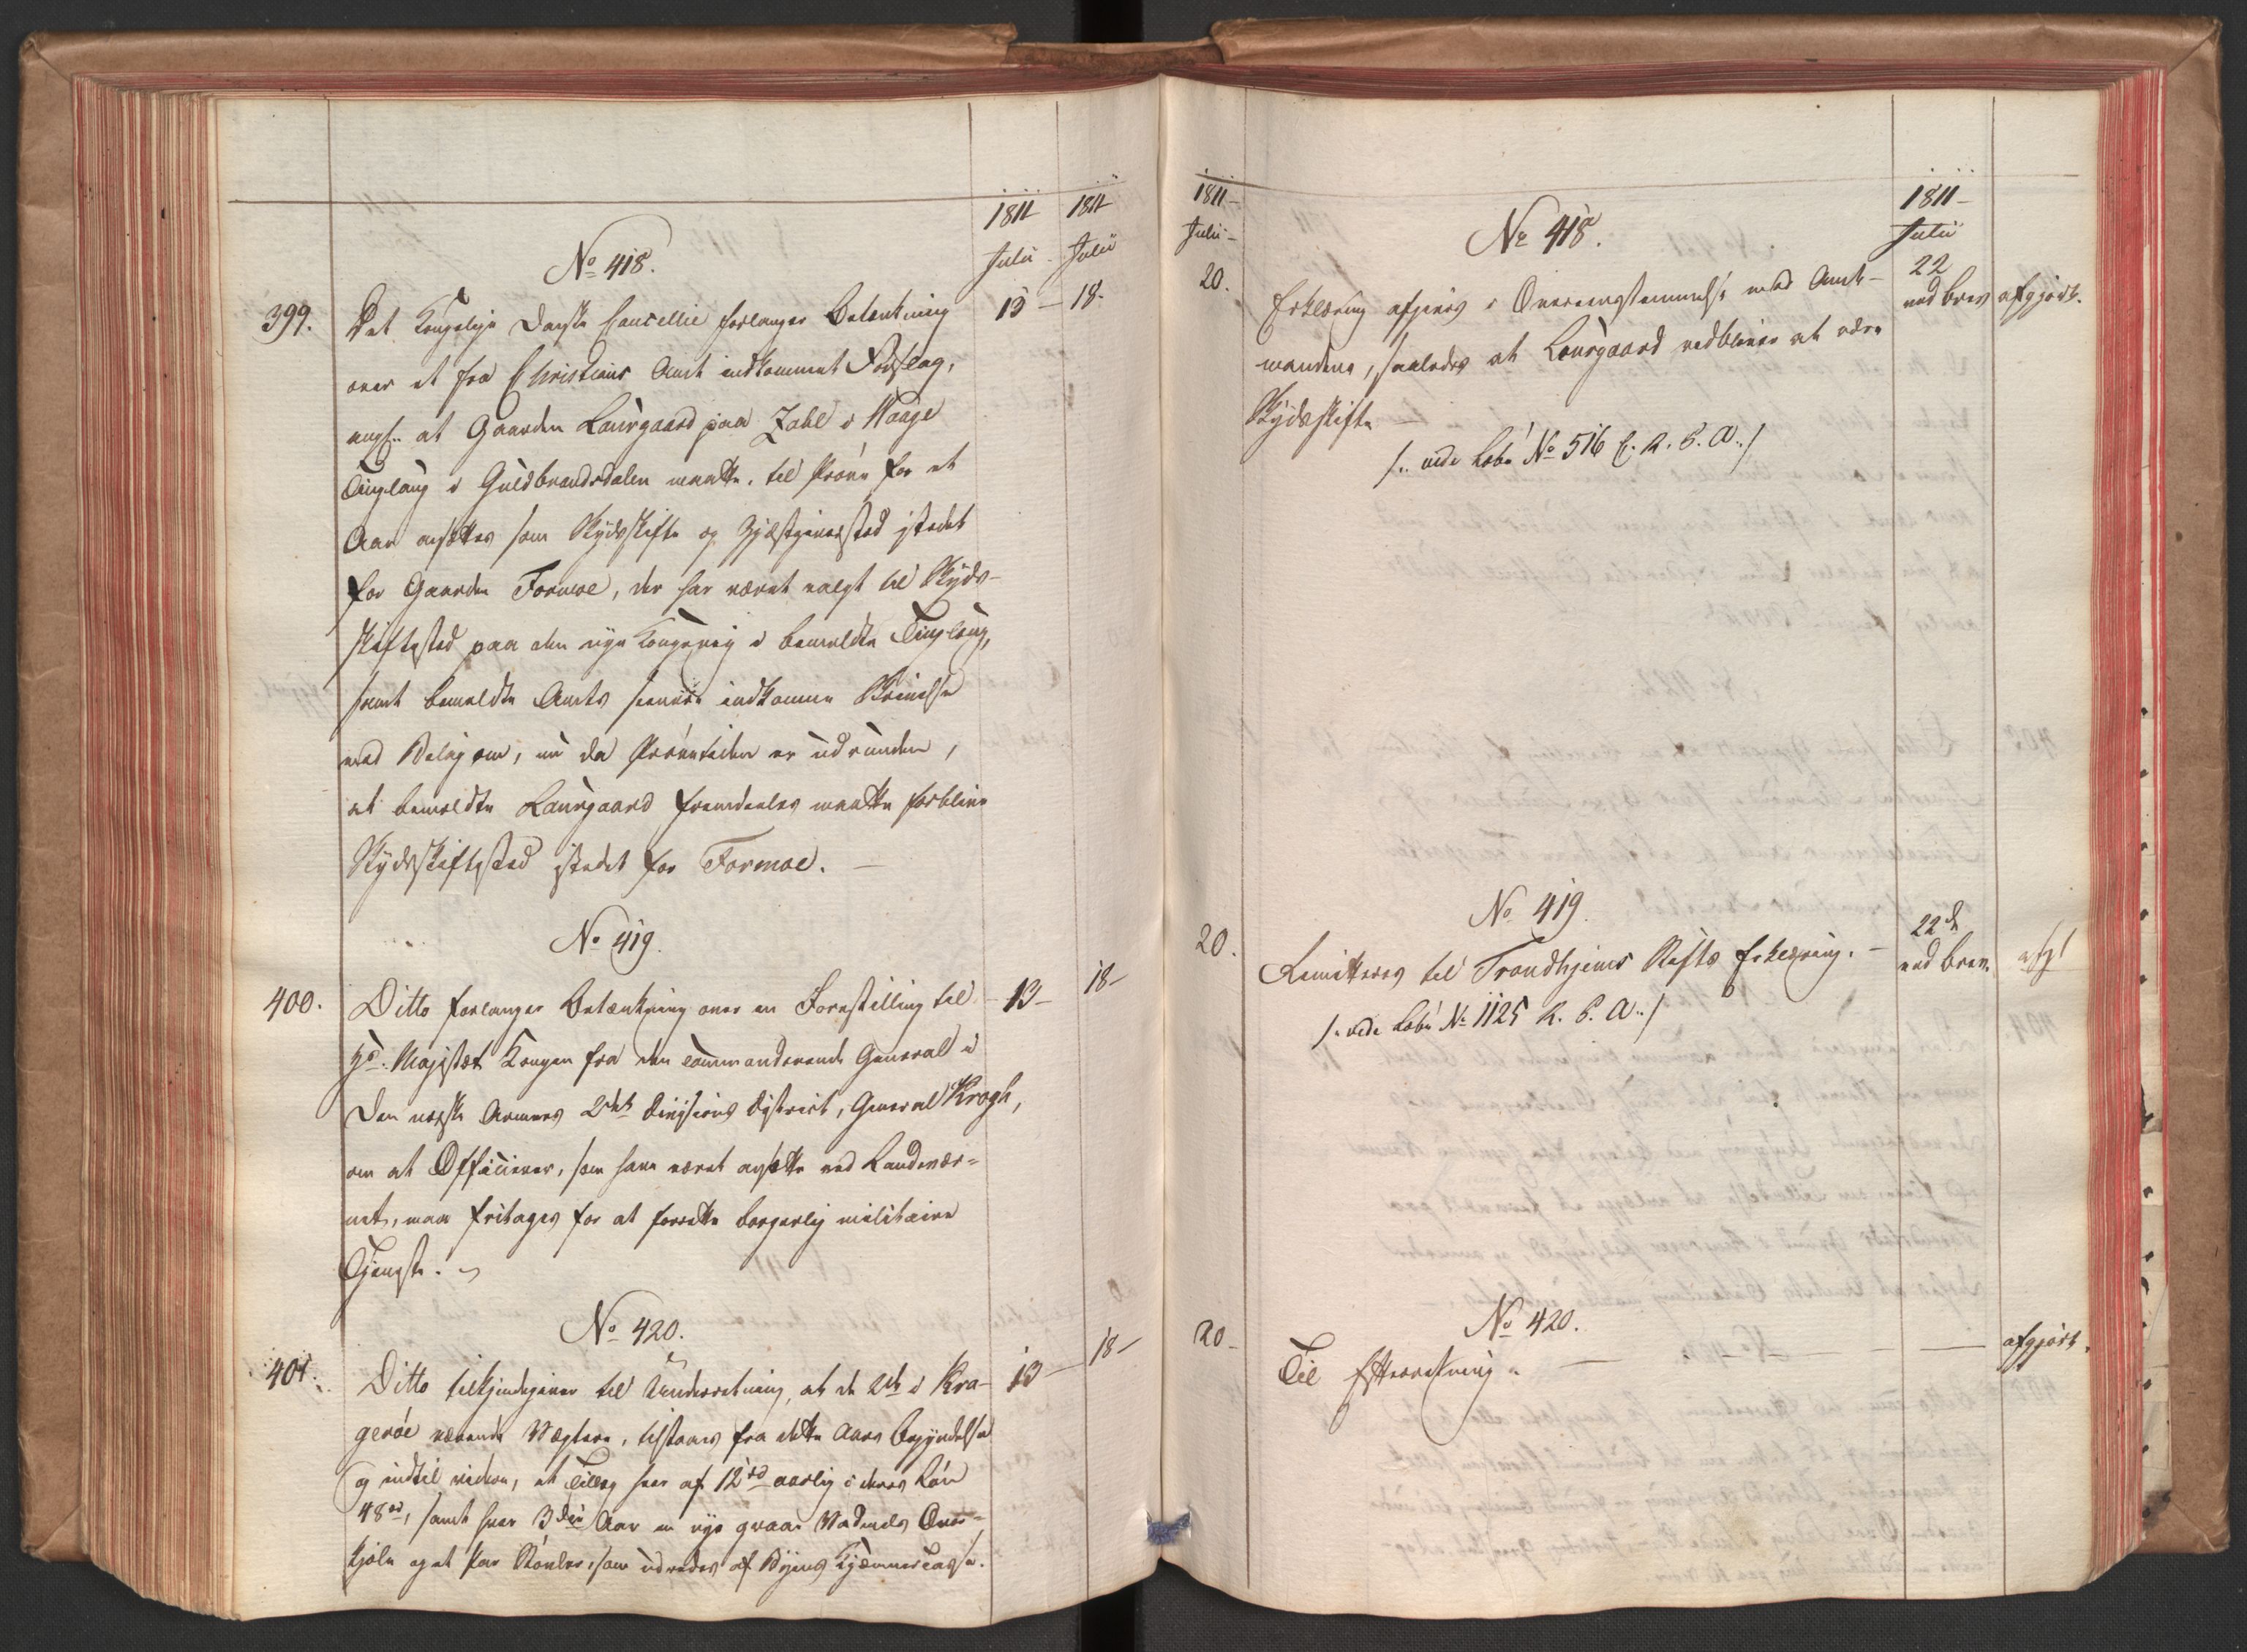 1811 1811
Julii Julii
No 418.
399. Det Kongelige Danske Cancellie forlanger Betænkning 13 — 18.
over et fra Christians Amt indkommet Forslag,
angl. at Gaarden Laurgaard paa Zahl i Waage
Tinglaug i Guldbrandsdalen maatte, til Prøve for et
Aar ansættes som Skydsskifte og Gjæstgiverstad istedet
for Gaarden Formoe, der har været valgt til Skyds-
skiftestad paa den nye Kongevej i bemeldte Tinglaug,
samt bemeldte Amts senere indkomne Skrivelse
med Bilag om, nu da Prøvetiden er udrunden,
at bemeldte Laurgaard fremdeeles maatte forblive
Skydsskiftestad istedet for Formoe. —
No 419.
400. Ditto forlanger Betænkning over en Forestilling til 13 — 18 —
Hs. Majestæt Kongen fra den commanderende General i
den norske Armees 2det Divisions District, General Krogh,
om at Officierer, som have været ansatte ved Landevær-
net, maa fritages for at forrette borgerlig militaire
Tjeneste.
No 420.
401. Ditto tilkjendegiver til Underretning, at de 2de i Kra- 13 — 18 —
gerøe værende Vægtere, tilstaaes fra dette Aars Begyndelse
og indtil videre, et Tillæg hver af 12 rd aarlig i deres Løn
48 rd, samt hver 3die Aar en nye graae Vadmels Over-
kjole og et Par Støvler, som udredes af Byens Kjæmnercasse.
1811 — 1811 —
Julii — Julii
No 418.
20. Erklæring afgives i Overeensstemmelse med Amt- 22
manden, saaledes at Laurgaard vedbliver at være ved brev afgjort.
Skydsskifte —
/: vide Lobe No 516 C. R. S. A. :/
No 419.
20. Remitteres til Trondhjems Stifts Erklæring. — 22de
ved brev. afgl
/: vide Lobe No 1125 R. S. A. :/
No 420.
20 — Til Efterretning. — — — afgjort.